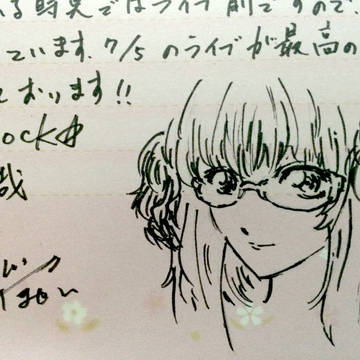 る時点ではライブ前ですので、
ています。7/5のライブが最高の
ております!!
ock☆
哉